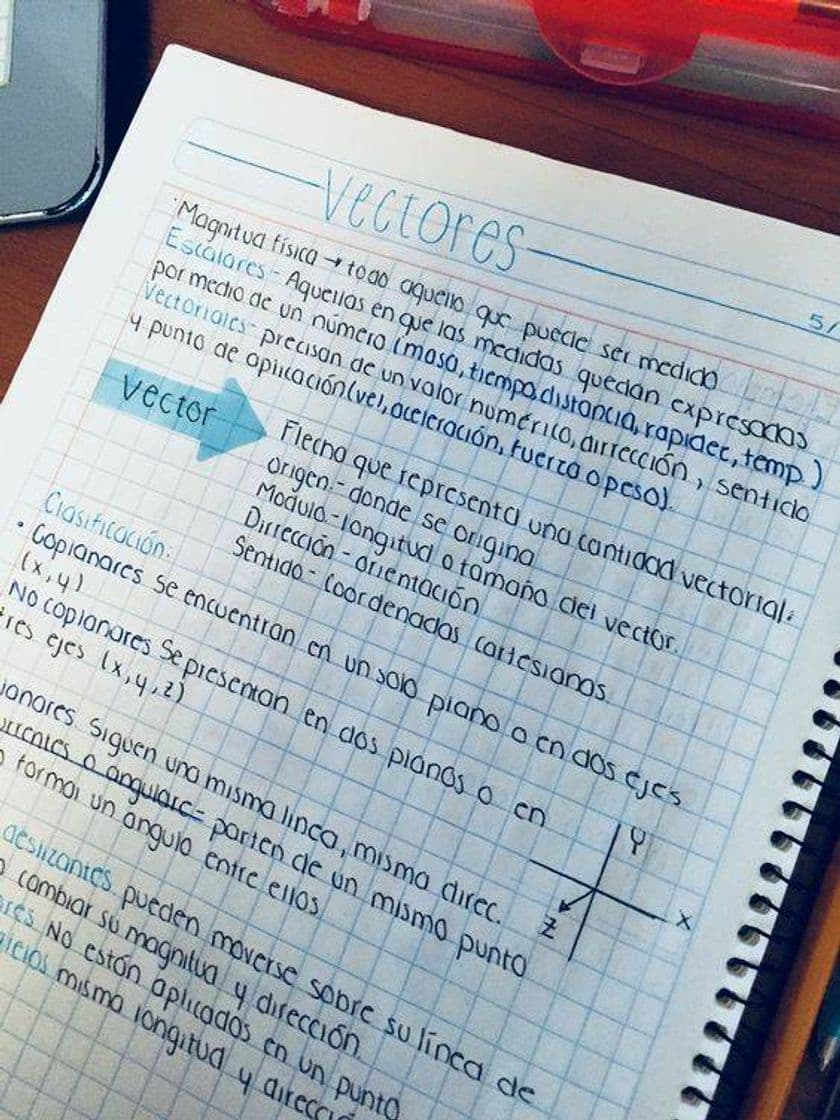 Vectores
5/
·Magnitud física → todo aquello que puede ser medido
Escalares - Aquellas en que las medidas quedan expresadas
por medio de un número (masa, tiempo, distancia, rapidec, temp.)
Vectoriales - precisan de un valor numérico, dirrección, sentido
y punto de aplicación (vel, aceleración, fuerza o peso).
vector
Flecha que representa una cantidad vectorial:
origen.- donde se origina
Modulo.- longitud o tamaño del vector.
Dirrección - orientación
Sentido - Coordenadas cartesianas.
Clasificación:
· Copianares Se encuentran en un solo plano o en dos ejes
(x,y)
No copianares Sepresentan en dos planos o en
tres ejes (x,y,z)
Siguen una misma linea, misma direc.
o angulare - parten de un mismo punto
formar un angulo entre ellos
deslizantes pueden moverse sobre su línea de
cambiar su magnitud y dirección.
No están aplicados en un punto
misma longitud y
Y
X
Z